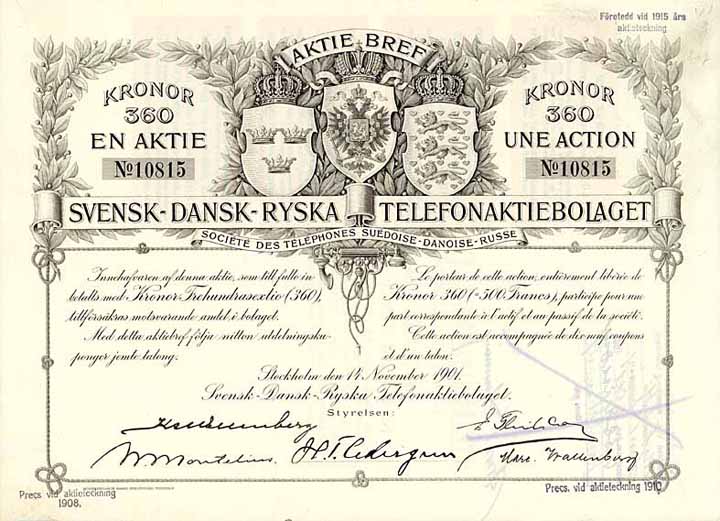 Företedd vid 1915 års
aktieteckning
AKTIE BREF
KRONOR
360
EN AKTIE
No 10815
KRONOR
360
UNE ACTION
No 10815
SVENSK-DANSK-RYSKA TELEFONAKTIEBOLAGET
SOCIÉTÉ DES TÉLÉPHONES SUÉDOISE-DANOISE-RUSSE
Innehafvaren af denna aktie, som till fullo in-
betalts med Kronor Trehundrasextio (360),
tillförsäkras motsvarande andel i bolaget.
Med detta aktiebref följa nitton utdelningsku-
ponger jemte talong.
Le porteur de cette action, entièrement libérée de
Kronor 360 (=500 Francs), participe pour une
part correspondante à l'actif et au passif de la société.
Cette action est accompagnée de dix-neuf coupons
et d'un talon.
Stockholm den 14 November 1901.
Svensk-Dansk-Ryska Telefonaktiebolaget.
Styrelsen:
H. T. Cedergren
Marc. Wallenberg
Precs. vid aktieteckning
1908.
Precs. vid aktieteckning 1910